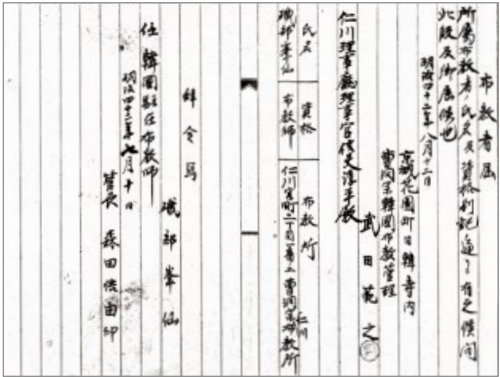 布教者届
所属布教者ノ氏名及資格別記ノ通リ有之候間
此段及御届候也
明治四十二年八月十二日
京城花園町日韓寺内
曹洞宗韓国布教管理
武田範之
仁川理事庁理事官信夫淳平殿
氏名 資格 布教所
磯部峯仙 布教師 仁川宮町二丁目 曹洞宗布教所
仁川
辞令写
磯部峯仙
任韓国駐在布教師
明治四十二年七月十日
管長 森田悟由印